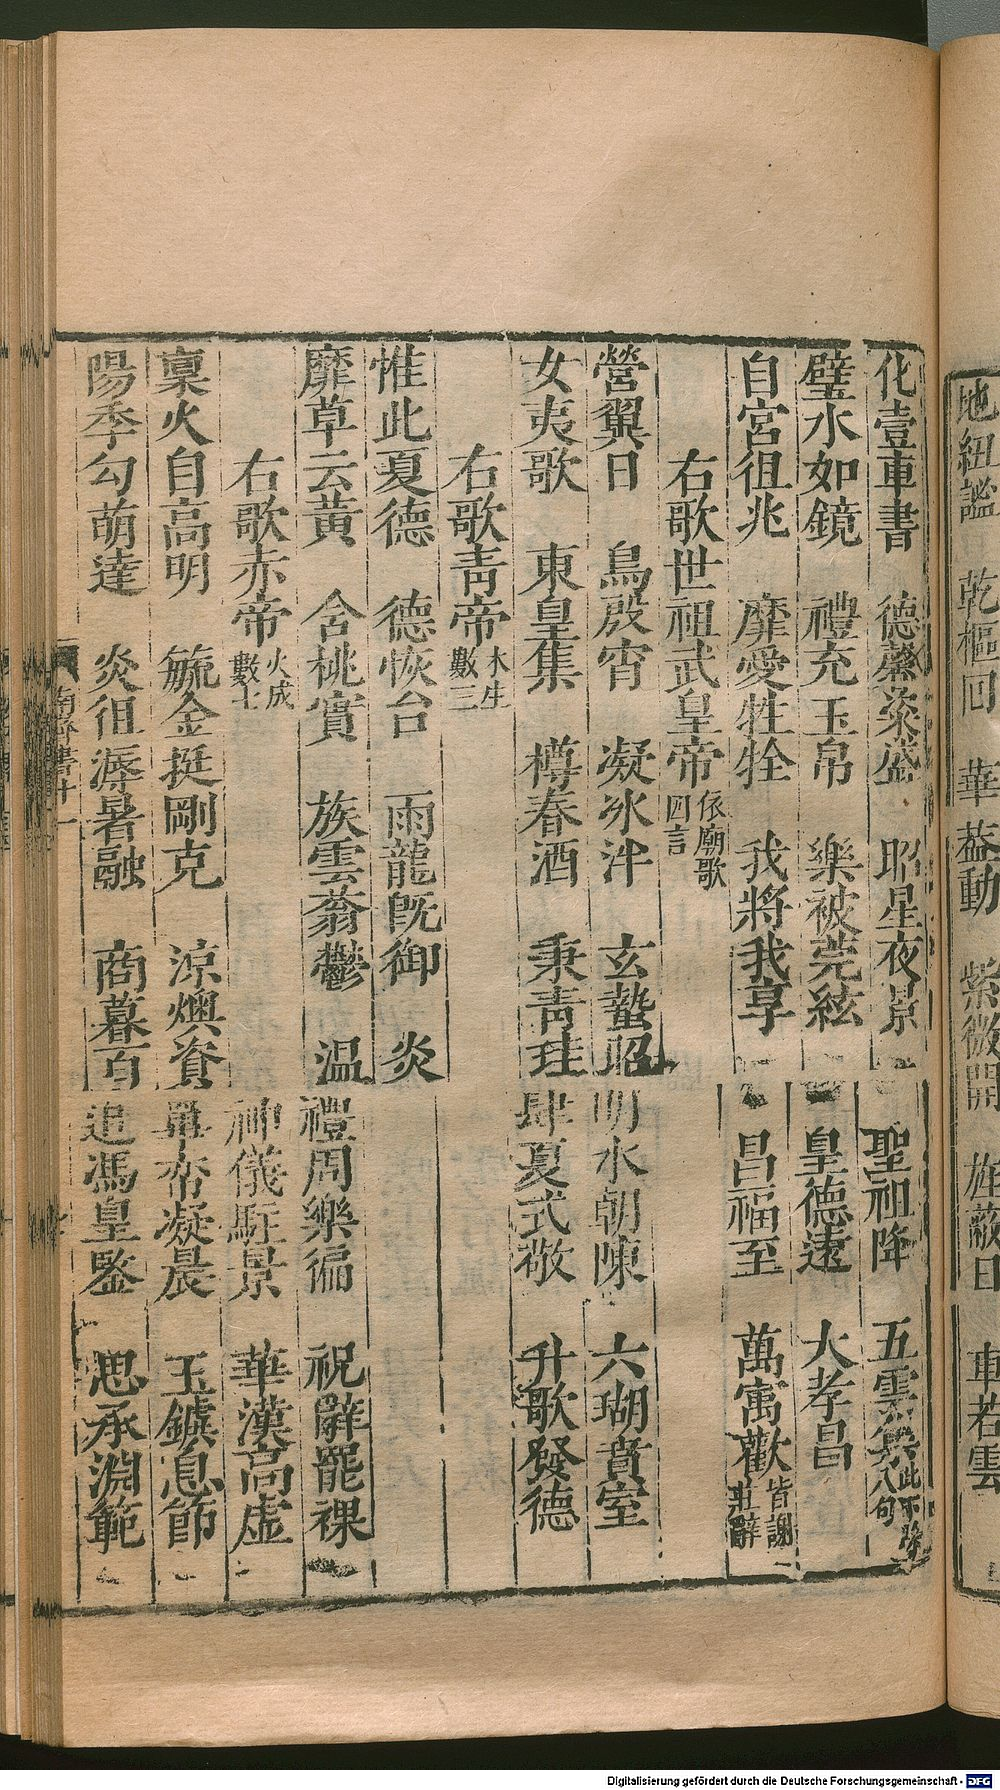 化壹車書 德馨粢盛 昭星夜景 聖祖降 五雲集此下除八句
璧水如鏡 禮充玉帛 樂被筦絃 皇德遠 大孝昌
自宮徂兆 靡愛牲牷 我將我享 昌福至 萬寓歡皆謝莊辭
右歌世祖武皇帝依廟歌四言
營翼日 鳥殷宵 凝冰泮 玄蟄昭 明水朝陳 六瑚賁室
女夷歌 東皇集 樽春酒 秉青珪 肆夏式敬 升歌發德
右歌靑帝木生數三
惟此夏德 德恢台 雨龍旣御 炎
靡草云黃 含桃實 族雲蓊鬱 温 禮周樂徧 祝辭罷祼
右歌赤帝火成數七 神儀駐景 華漢高虛
稟火自高明 毓金挺剛克 涼燠資 羃帟凝晨 玉鑣息節
陽季勾萌達 炎徂溽暑融 商暮百 追馮皇鑒 思承淵範
南齊書十一
地紐謐 乾樞回 華葢動 紫微開 旌蔽日 車若雲
Digitalisierung gefördert durch die Deutsche Forschungsgemeinschaft - DFG